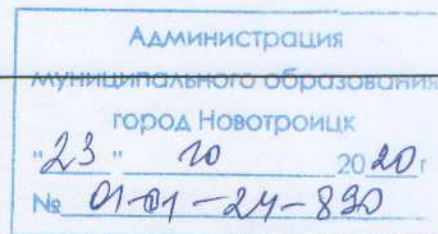 Администрация
муниципального образования
город Новотроицк
"23" 10 2020 г
№ 01-01-24-890